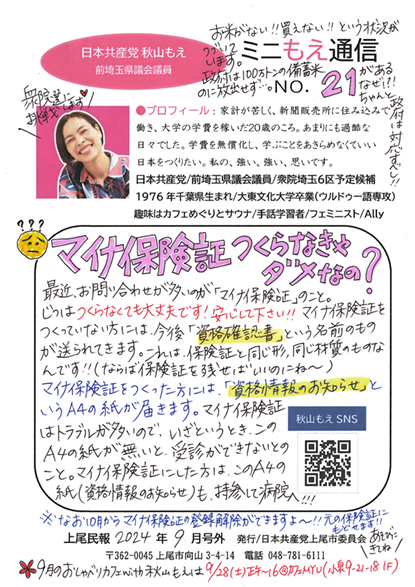 お米がない!!買えない!!という状況が
つづいて
います。
政府は100万トンの備蓄米
があるのに放出せず…なぜ!?
ちゃんと
政府は対応すべし!!
日本共産党 秋山もえ
前埼玉県議会議員
ミニもえ通信
NO. 21
衆院選に
お役立ちます
●プロフィール：家計が苦しく、新聞販売所に住み込みで
働き、大学の学費を稼いだ20歳のころ。あまりにも過酷な
日々でした。学費を無償化し、学ぶことをあきらめなくていい
日本をつくりたい。私の、強い、強い、思いです。
日本共産党/前埼玉県議会議員/衆院埼玉6区予定候補
1976年千葉県生まれ/大東文化大学卒業(ウルドゥー語専攻)
趣味はカフェめぐりとサウナ/手話学習者/フェミニスト/Ally
???
マイナ保険証つくらなきゃ
ダメなの?
最近、お問い合わせが多いのが「マイナ保険証」のこと。
じつはつくらなくても大丈夫です!安心して下さい!!マイナ保険証を
つくっていない方には、今後「資格確認書」という名前のもの
が送られてきます。これは、保険証と同じ形、同じ材質のものな
んです!!(ならば保険証を残せばいいのにね〜)
マイナ保険証をつくった方には、「資格情報のお知らせ」と
いうA4の紙が届きます。マイナ保険証
はトラブルが多いので、いざというとき、この
A4の紙が無いと、受診ができないとの
こと。マイナ保険証にした方は、このA4の
紙(資格情報のお知らせ)も、持参して病院へ!!!
秋山もえ SNS
※なお10月からマイナ保険証の登録解除ができますよ〜!!元の保険証に
もどせます!!
上尾民報 2024年 9月号外 発行/日本共産党上尾市委員会
〒362-0045 上尾市向山3-4-14 電話 048-781-6111
あそびに
きてね
9月のおしゃべりカフェwith秋山もえは 9/28(土)正午〜16@カフェMYU(小泉9-21-18 1F)